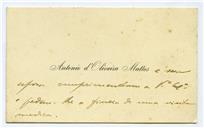 Antonio d'Oliveira Mattos e seu
esposa cumprimentam a V. Ex.ª
e pedem-lhe a fineza de uma visita
medica.